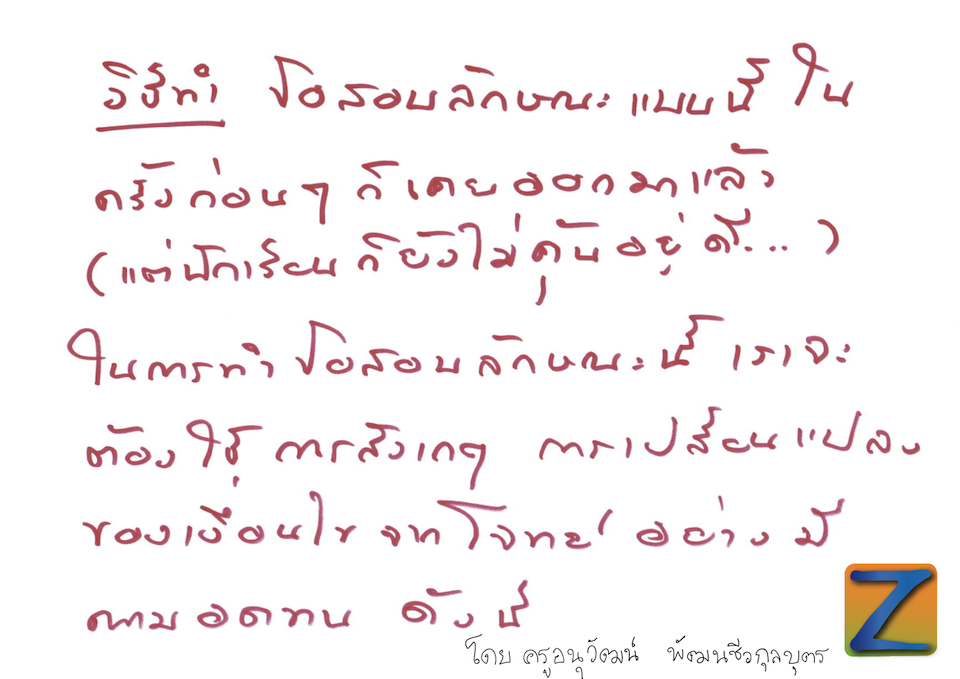 วิธีทำ ข้อสอบลักษณะแบบนี้ ใน
ครั้งก่อนๆ ก็เคยออกมาแล้ว
(แต่นักเรียนก็ยังไม่คุ้นอยู่ดี...)
ในการทำข้อสอบลักษณะนี้ เราจะ
ต้องใช้ การสังเกตุ การเปลี่ยนแปลง
ของเงื่อนไข จากโจทย์ อย่างมี
ความอดทน ดังนี้
โดย ครูอนุวัฒน์ พัฒนชีวกุลบุตร
Z